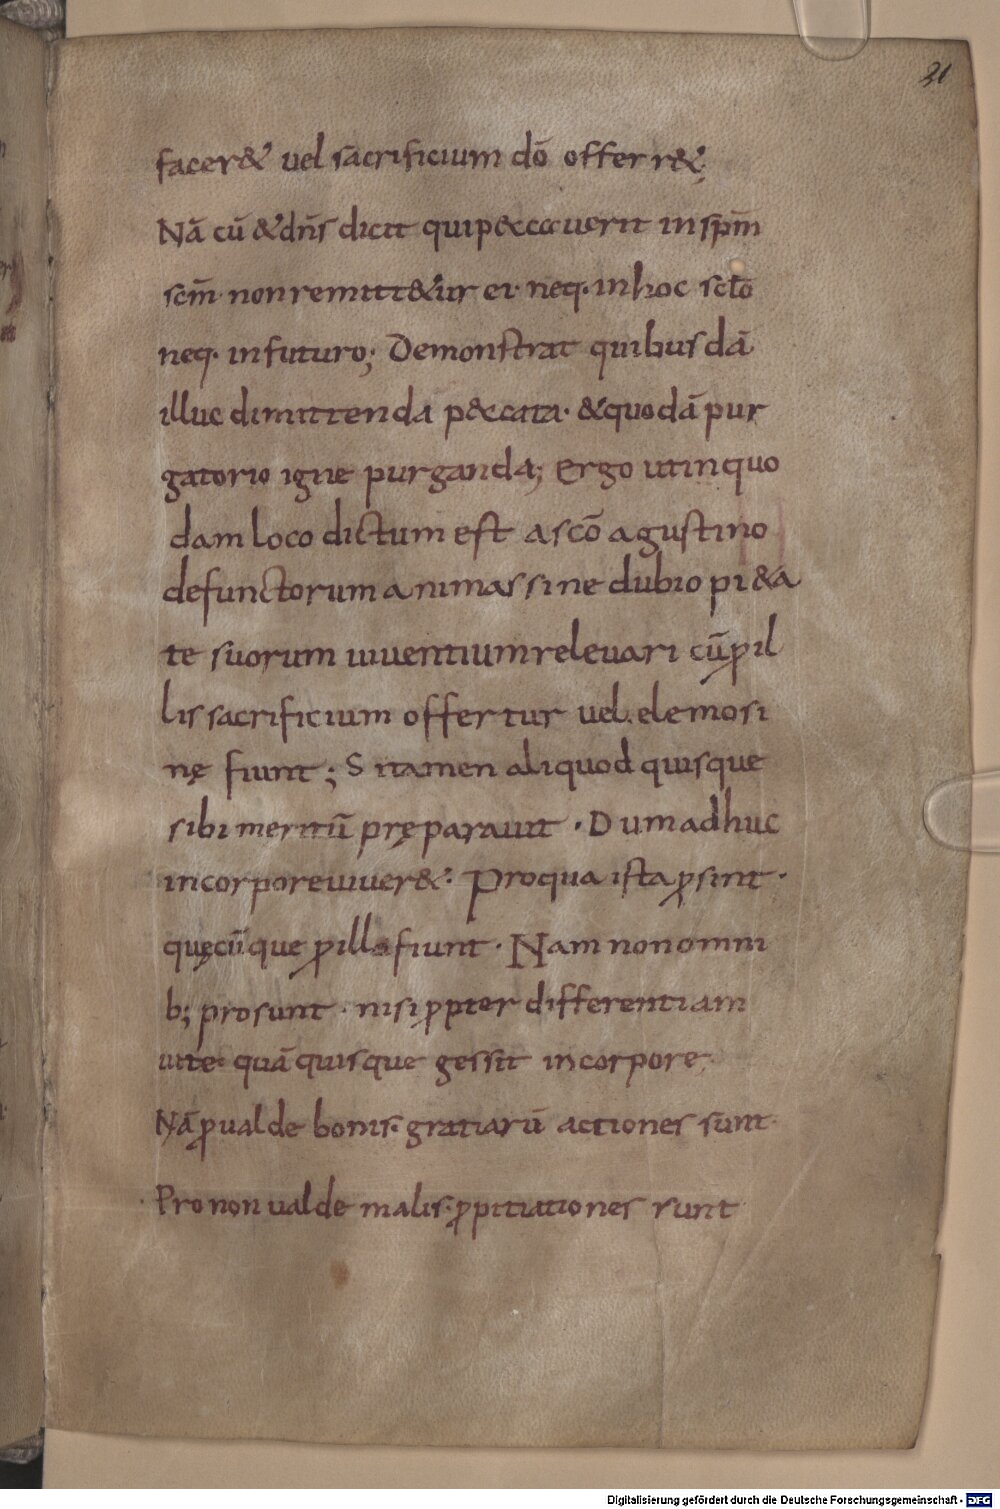 21
facer& uel sacrificium dō offerr&;
Nā cū & dn̄s dicit qui p&ccauerit in sp̄m
sc̄m non remitt&ur ei neq· in hoc sc̄lo
neq· in futuro; Demonstrat quibusdā
illuc dimittenda p&ccata· & quodā pur
gatorio igne purganda; Ergo ut in quo
dam loco dictum est a scō agustino
defunctorum animas sine dubio pi&a
te suorum uiuentium releuari cū ꝓ il
lis sacrificium offertur uel elemosi
nę fiunt; Si tamen aliquod quisque
sibi meritū pręparauit · Dum adhuc
in corpore uiuer&· Pro qua ista ꝓsint ·
quęcūque ꝓ illa fiunt · Nam non omni
b; prosunt · nisi ꝓpter differentiam
uite· quā quisque gessit in corpore
Nā ꝓ ualde bonis· gratiarū actiones sunt·
Pro non ualde malis· ꝓpitiationes sunt
Digitalisierung gefördert durch die Deutsche Forschungsgemeinschaft - DFG